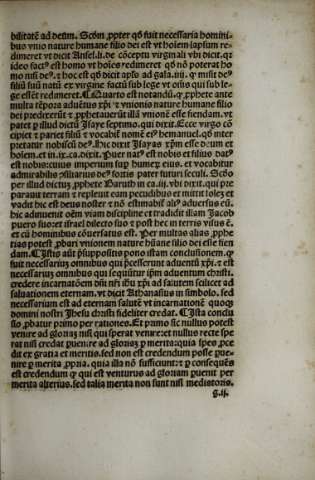 bilitatē ad deum. Scđm ,ppter qđ fuit necessaria homini-
bus vnio nature humane filio dei est vt hoīem lapsum re-
dimeret vt dicit Ansel. li. de cōceptu virginali vbi dicit. q̃
ideo factꝰ est homo vt hoīes redimeret qđ nō poterat ho-
mo nisi deꝰ. ⁊ hoc est qđ dicit apłs ad gala. iiij. ꝙ misit deꝰ
filiū suū natū ex virgine factū sub lege vt eos qui sub le-
ge essēt redimeret. Quarto est notandū. ꝙ ,pphete ante
multa tēpora aduētus xp̄i ⁊ vnionis nature humane filio
dei predixerūt ⁊ ,pphetauerūt illā vnionē esse fiendam. vt
patet p illud dictū Isaye septimo. qui dixit. Ecce virgo cō
cipiet ⁊ pariet filiū ⁊ vocabiť nomē eiꝰ hemanuel. qđ inter
pretatur nobiscū deꝰ. Hic dixit Isayas xp̄m esse deum et
hoīem. et in .ix. ca. dixit. Puer natꝰ est nobis et filius datꝰ
est nobis cuius imperium sup humeꝝ eius. et vocabitur
admirabilis ↄsiliarius deꝰ fortis pater futuri seculi. Scđo
per illud dictuꝫ ,pphete Baruth in ca. iij. vbi dixit. qui pre
parauit terram ⁊ repleuit eam pecudibus et mittit solez et
vadit hic est deus noster ⁊ nō estimabiť aliꝰ aduersus eū.
hic adinuenit oēm viam discipline et tradidit illam Jacob
puero suo ⁊ israel dilecto suo ⁊ post hec in terris visus ē.
et cū hominibus cōuersatus est. Per multas alias ,pphe
tias potest ,pbari vnionem nature hūane filio dei esse fien
dam. Istis aūt p̄suppositis pono istam conclusionem. ꝙ
fuit necessariuꝫ omnibus qui p̄cesserunt aduentū xp̄i. ⁊ est
necessariuꝫ omnibus qui sequūtur ip̄m aduentum christi.
credere incarnatōem dn̄i nr̄i ihū xp̄i ad salutem scilicet ad
saluationem eternam. vt dicit Athanasius in simbolo. sed
necessarium est ad eternam salutē vt incarnationē quoqꝫ
domini nostri Jhesu christi fideliter credat. Ista conclu
sio ,pbatur primo per rationes. Et primo sic nullus potest
venire ad gloriaꝫ nisi qui sperat venire: et nullus recte spe
rat nisi credat puenire ad gloriaꝫ p merita: quia spes ,pce
dit ex gratia et meritis. sed non est credendum posse pue-
nire p merita ,ppria. quia illa nō sufficiunt: ⁊ p consequēs
est credendum ꝙ qui est venturus ad gloriam puenit per
merita alterius. sed talia merita non sunt nisi mediatoris.
g. ij.